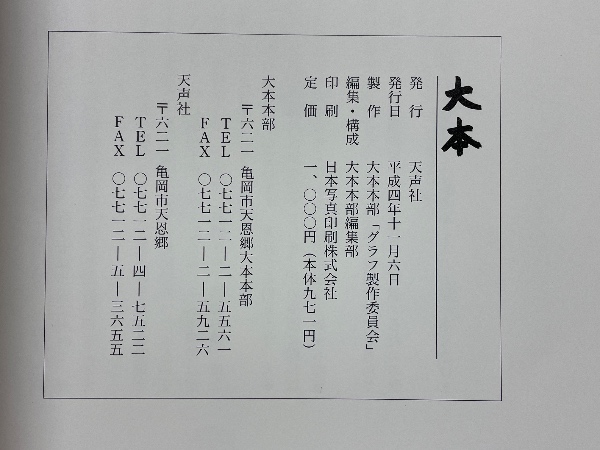 大本
発行 天声社
発行日 平成四年十一月六日
製作 大本本部「グラフ製作委員会」
編集・構成 大本本部編集部
印刷 日本写真印刷株式会社
定価 一、〇〇〇円（本体九七一円）
大本本部
〒六二一 亀岡市天恩郷大本本部
ＴＥＬ 〇七七一二―二―五五六一
ＦＡＸ 〇七七一二―二―五九二六
天声社
〒六二一 亀岡市天恩郷
ＴＥＬ 〇七七一二―四―七五二二
ＦＡＸ 〇七七一二―五―三六五五